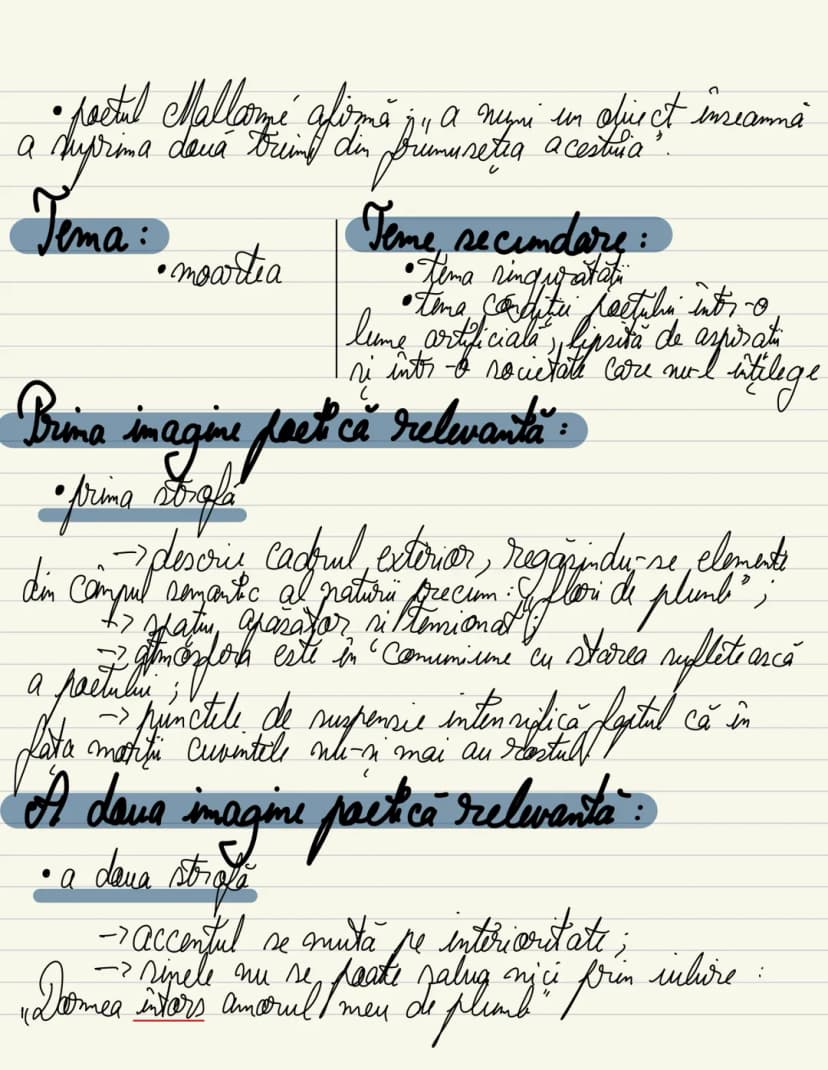 • poetul Mallarmé afirmă: „a numi un obiect înseamnă
a suprima două treimi din frumusețea acestuia”.
Tema:
• moartea
Teme secundare:
• tema singurătății
• tema condiției poetului într-o
lume artificială, lipsită de aspirații
și într-o societate care nu-l înțilege
Prima imagine poetică relevantă:
• prima strofă
-> descrie cadrul exterior, regăsindu-se elemente
din câmpul semantic al naturii precum: „flori de plumb”;
-> spațiu apăsător și tensionat;
-> atmosfera este în comuniune cu starea sufletească
a poetului;
-> punctele de suspensie intensifică faptul că în
fața morții cuvintele nu-și mai au rostul.
A doua imagine poetică relevantă:
• a doua strofă
-> accentul se mută pe interioritate;
-> sinele nu se poate salva nici prin iubire:
„Dormea întors amorul meu de plumb”